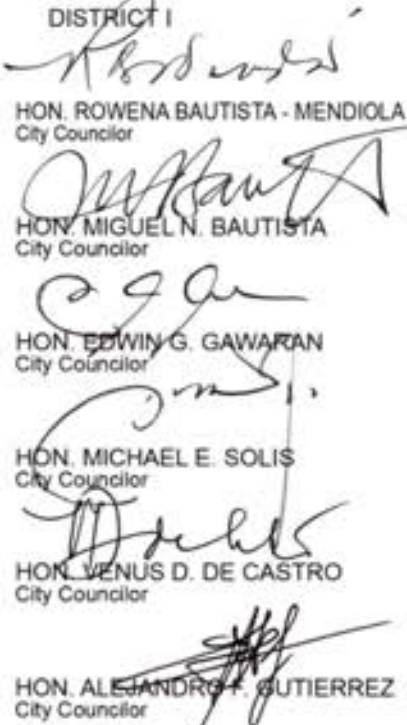 DISTRICT I
HON. ROWENA BAUTISTA - MENDIOLA
City Councilor
HON. MIGUEL N. BAUTISTA
City Councilor
HON. EDWIN G. GAWARAN
City Councilor
HON. MICHAEL E. SOLIS
City Councilor
HON. VENUS D. DE CASTRO
City Councilor
HON. ALEJANDRO F. GUTIERREZ
City Councilor